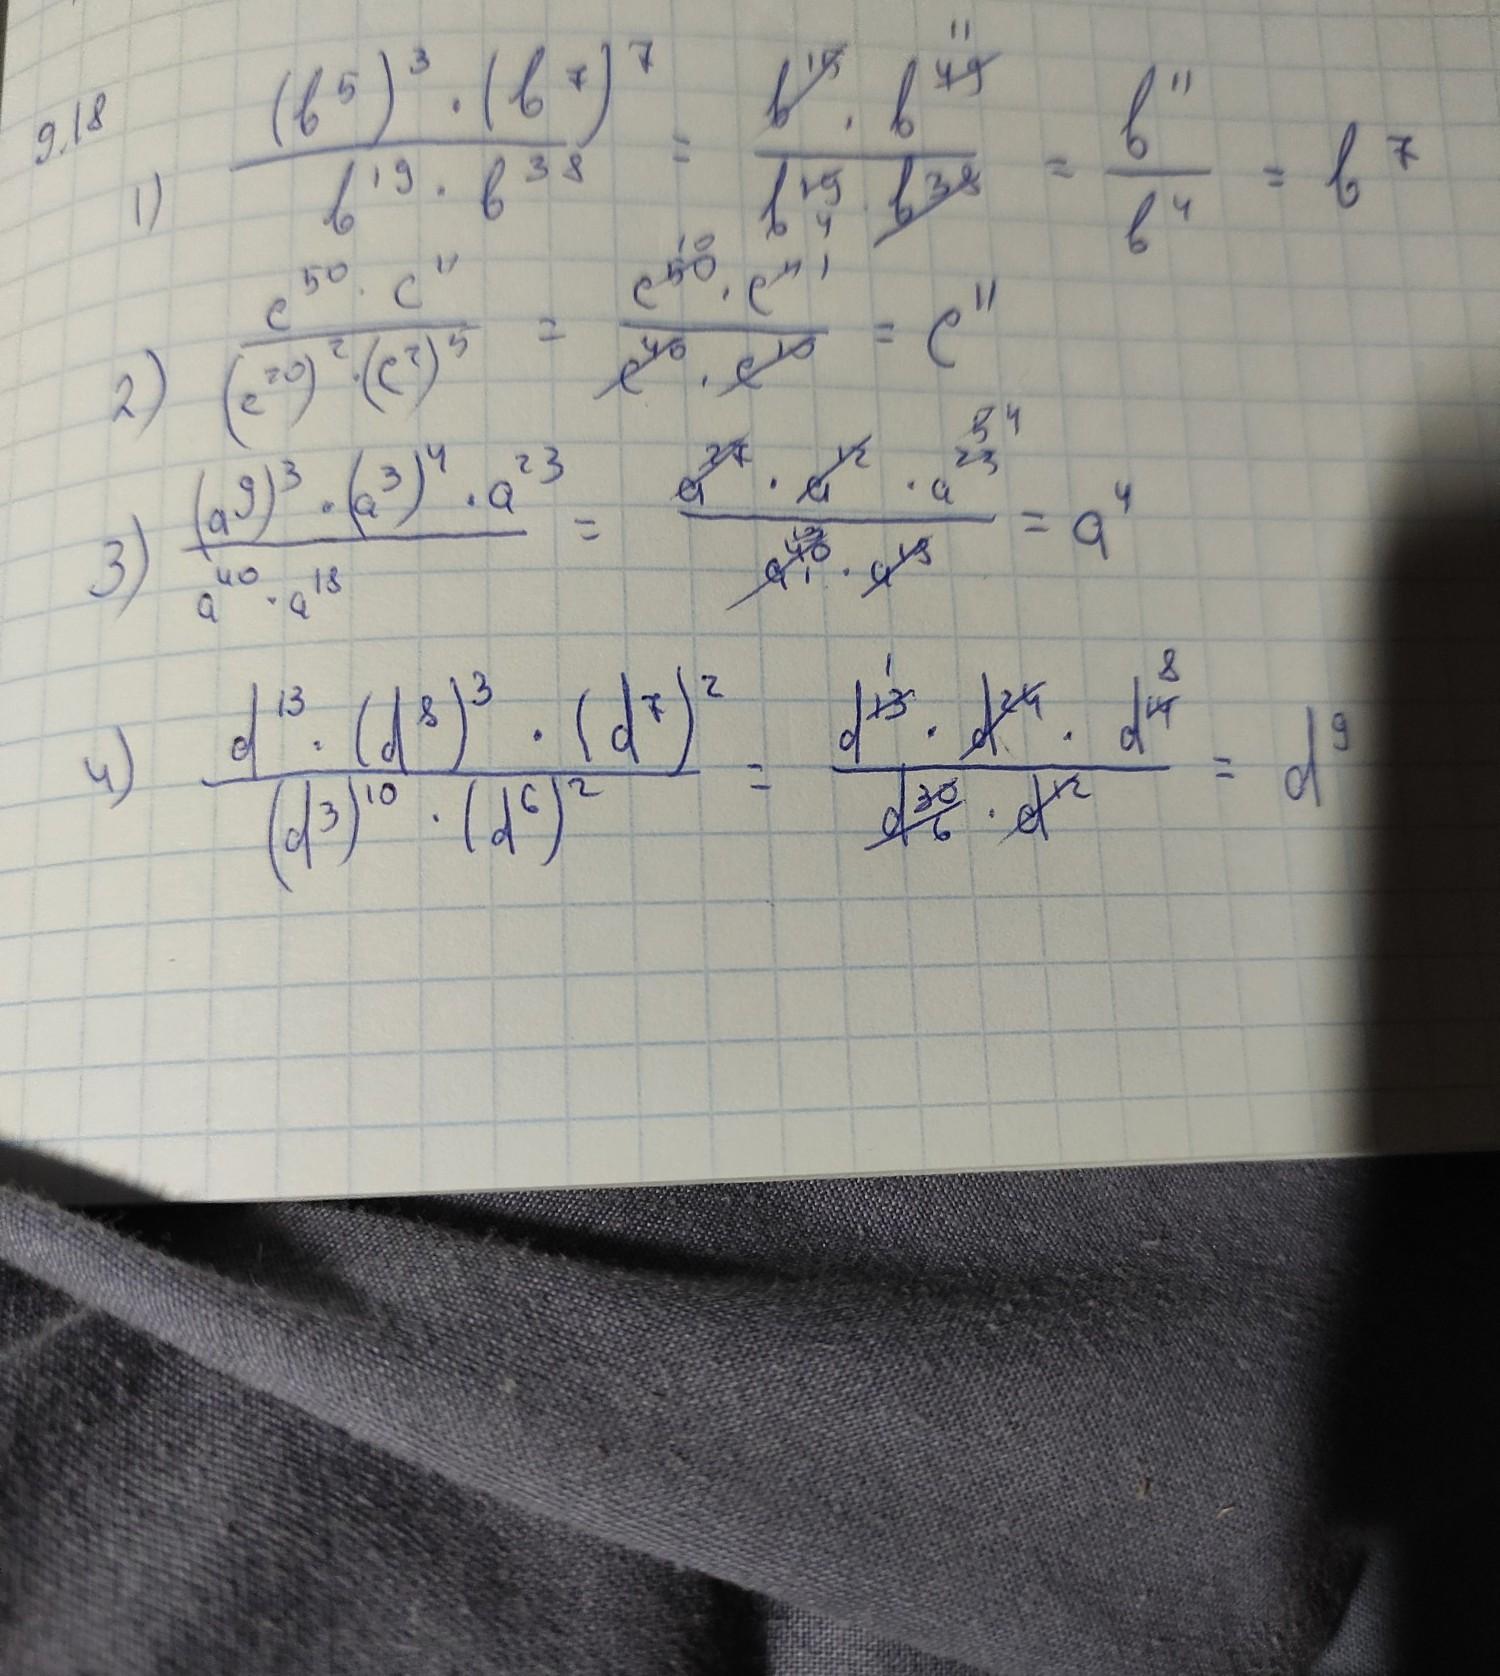 9.18
1) (b^5)^3 · (b^7)^7 / b^19 · b^38 = b^15 · b^49 11 / b^19 4 · b^38 = b^11 / b^4 = b^7
2) c^50 · c^11 / (c^20)^2 · (c^2)^5 = c^50 10 · c^11 1 / c^40 · c^10 = c^11
3) (a^9)^3 · (a^3)^4 · a^23 / a^40 · a^18 = a^27 · a^12 · a^23 5 4 / a^40 13 1 · a^18 = a^4
4) d^13 · (d^8)^3 · (d^7)^2 / (d^3)^10 · (d^6)^2 = d^13 1 · d^24 · d^14 8 / d^30 6 · d^12 = d^9